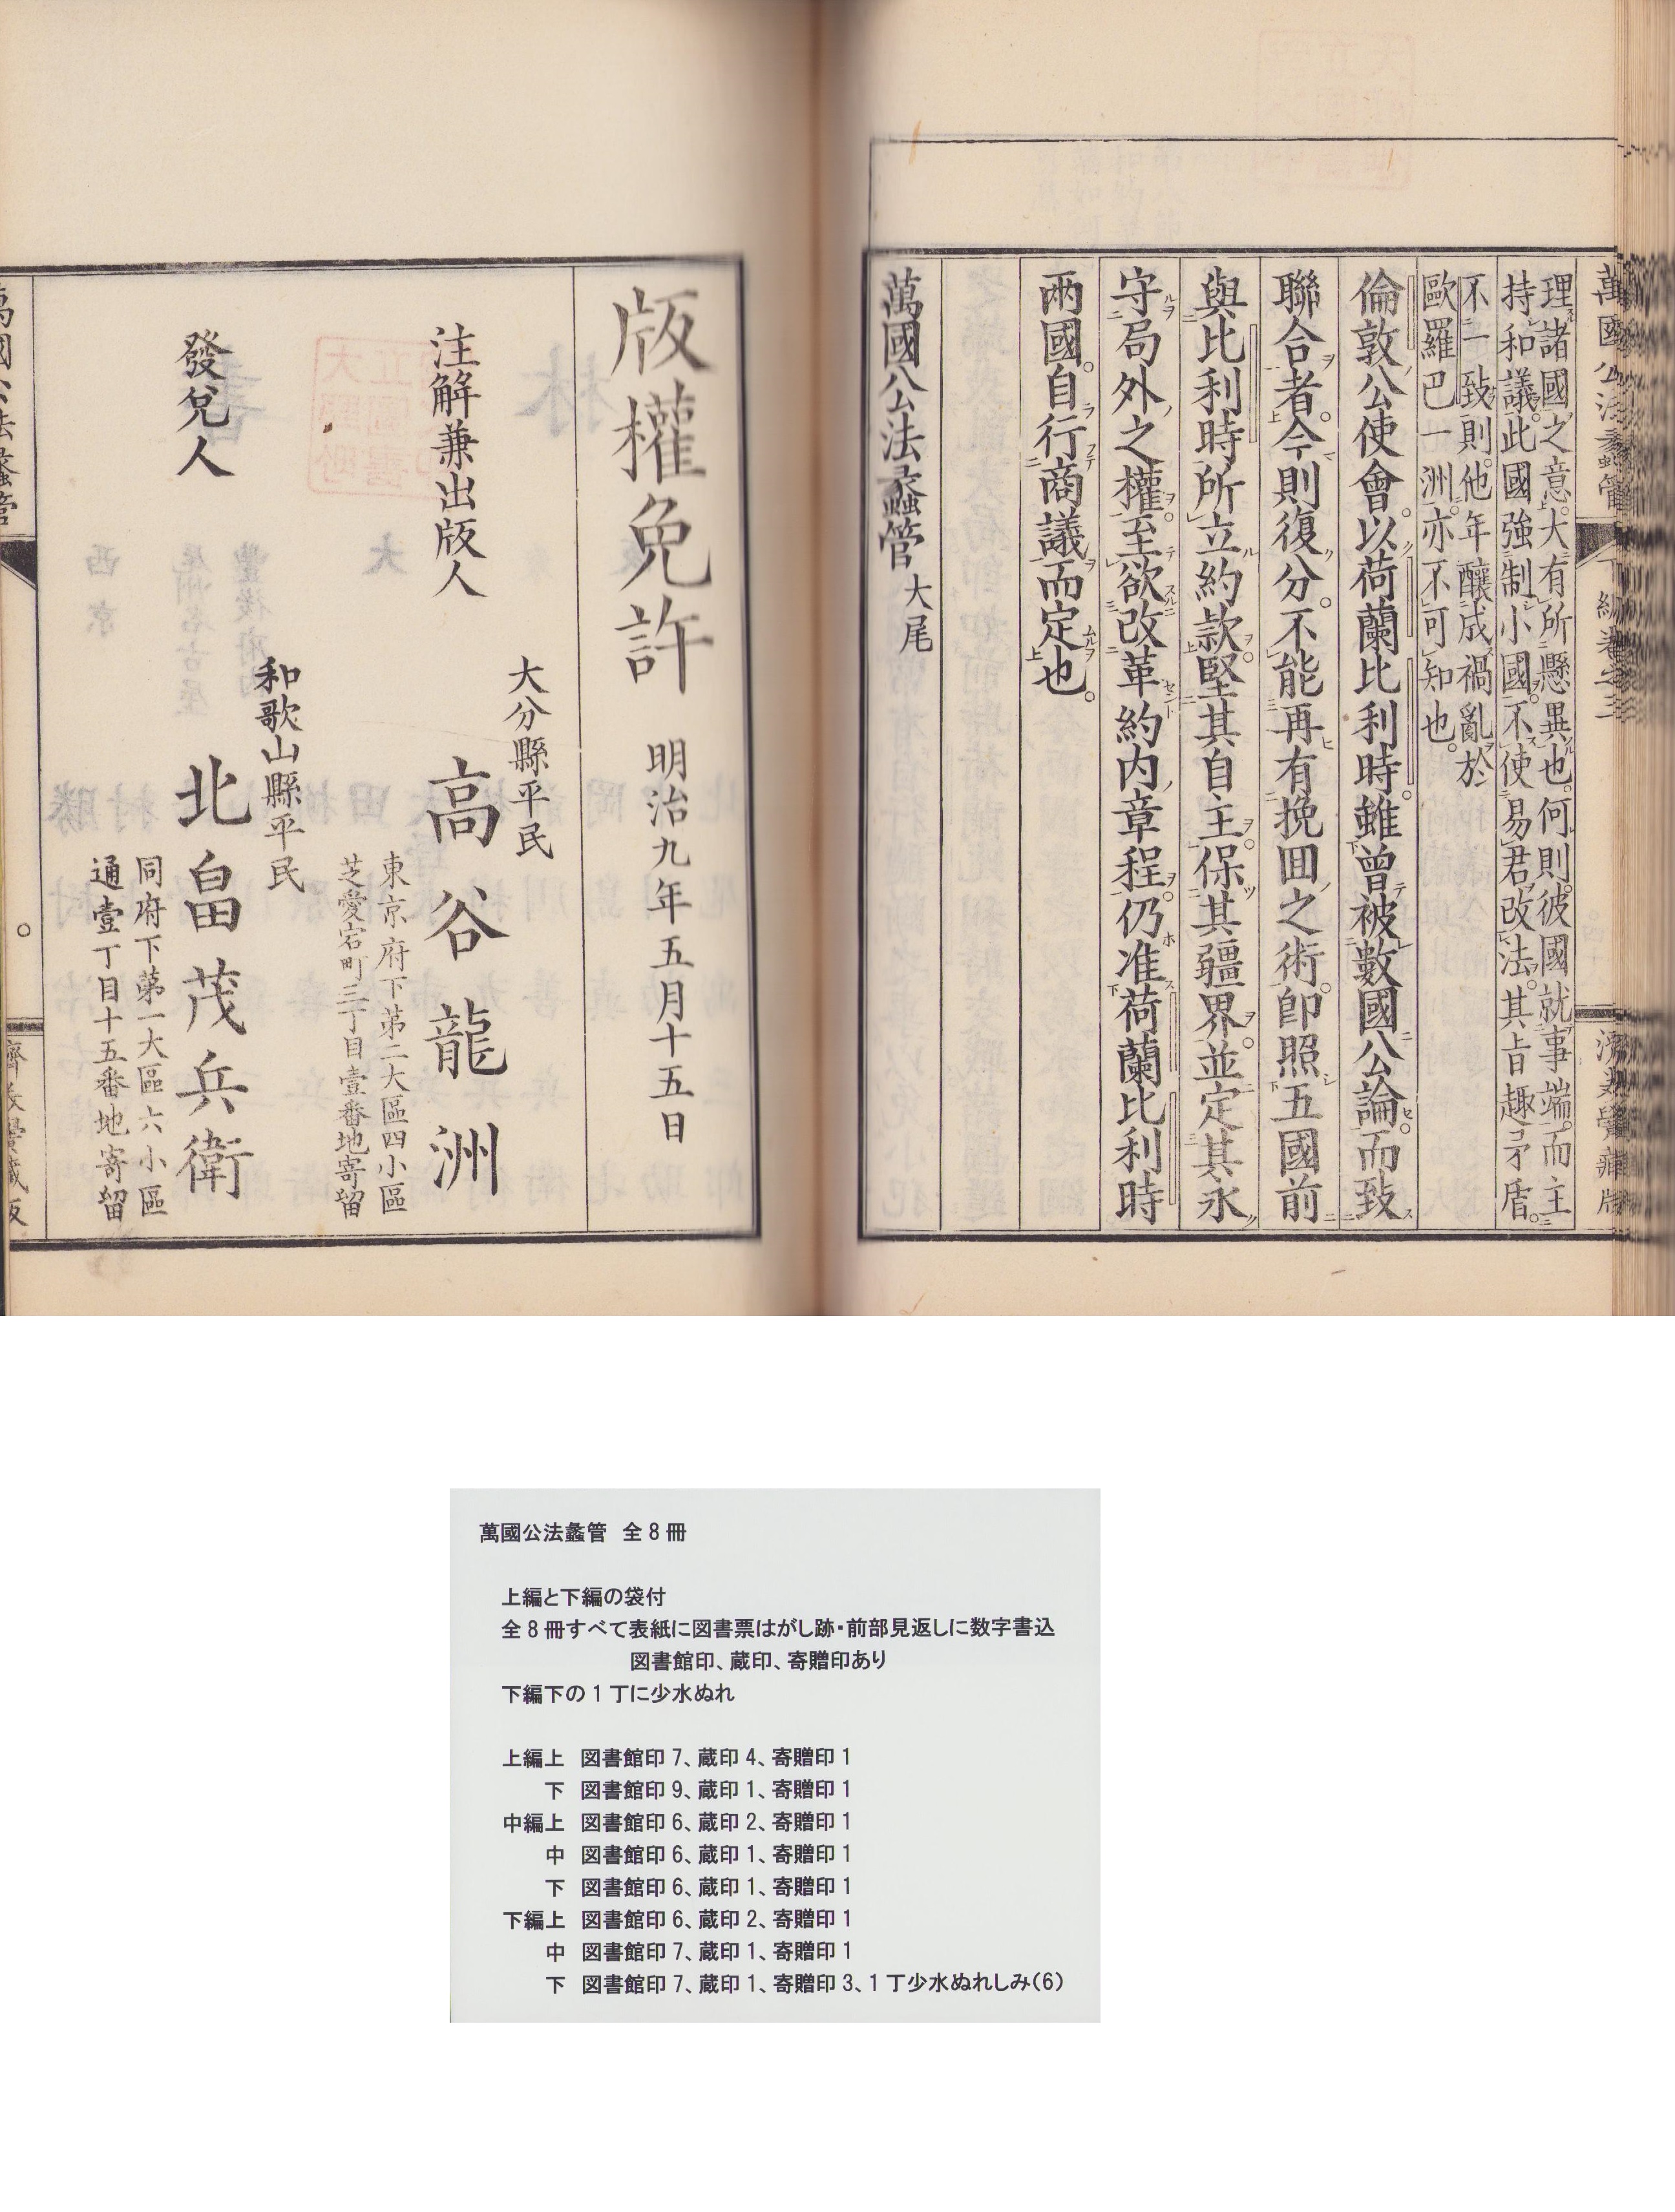 萬國公法蠡管
下編卷之三
理諸國之意大有所懸異也何則彼國就事端而主
持和議此國強制小國不使易君改法其旨趣矛盾
不一致則他年釀成禍亂於
歐羅巴一洲亦不可知也
倫敦公使會以荷蘭比利時雖曾被數國公論而致
聯合者今則復分不能再有挽回之術即照五國前
與比利時所立約款堅其自主保其疆界並定其永
守局外之權至欲改革約內章程仍准荷蘭比利時
兩國自行商議而定也
萬國公法蠡管大尾
版權免許 明治九年五月十五日
大分縣平民
注解兼出版人 高谷龍洲
東京府下第二大區四小區
芝愛宕町三丁目壹番地寄留
和歌山縣平民
發兌人 北畠茂兵衛
同府下第一大區六小區
通壹丁目十五番地寄留
萬國公法蠡管 全8冊
上編と下編の袋付
全8冊すべて表紙に図書票はがし跡・前部見返しに数字書込
図書館印、蔵印、寄贈印あり
下編下の1丁に少水ぬれ
上編上 図書館印7、蔵印4、寄贈印1
下 図書館印9、蔵印1、寄贈印1
中編上 図書館印6、蔵印2、寄贈印1
中 図書館印6、蔵印1、寄贈印1
下 図書館印6、蔵印1、寄贈印1
下編上 図書館印6、蔵印2、寄贈印1
中 図書館印7、蔵印1、寄贈印1
下 図書館印7、蔵印1、寄贈印3、1丁少水ぬれしみ(6)